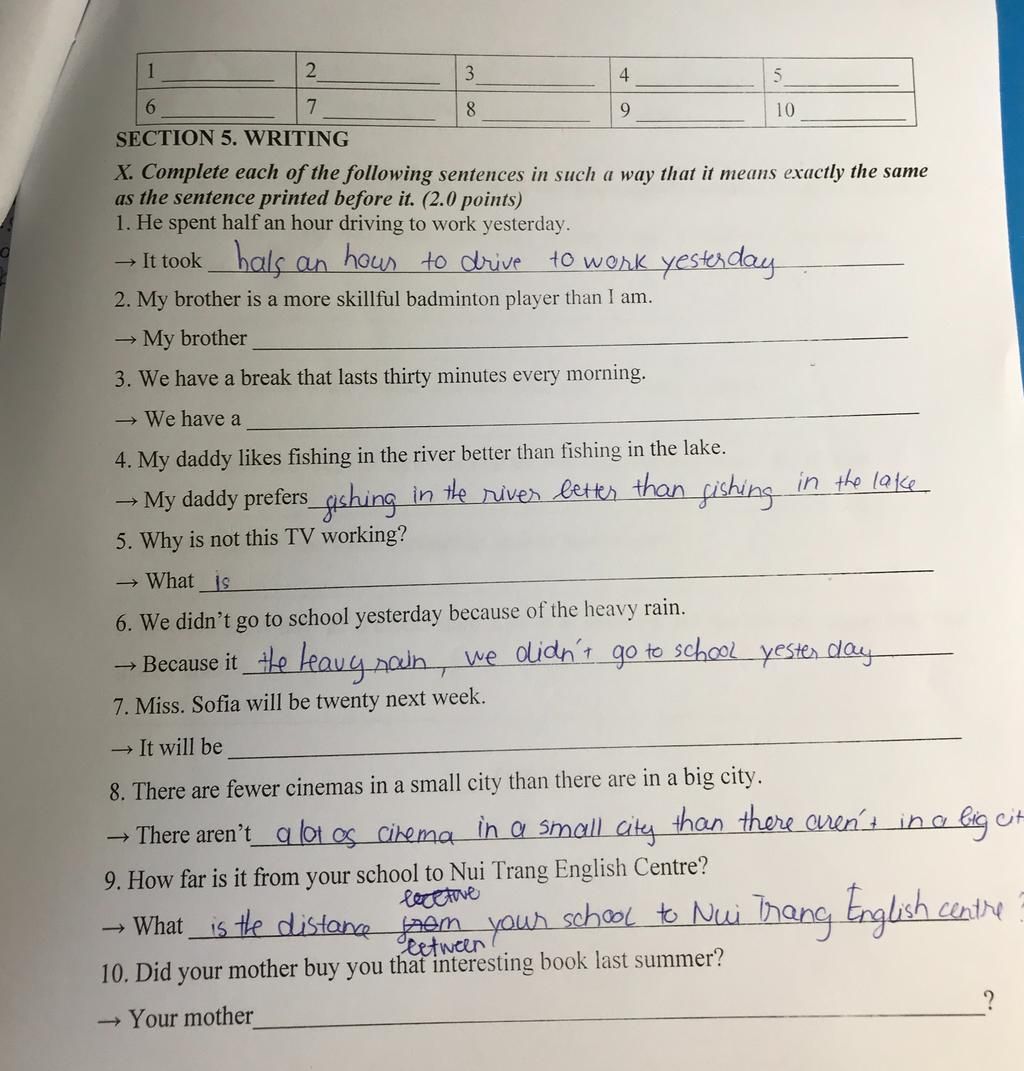 1 ____ 2 ____ 3 ____ 4 ____ 5 ____
6 ____ 7 ____ 8 ____ 9 ____ 10 ____
SECTION 5. WRITING
X. Complete each of the following sentences in such a way that it means exactly the same
as the sentence printed before it. (2.0 points)
1. He spent half an hour driving to work yesterday.
→ It took half an hour to drive to work yesterday
2. My brother is a more skillful badminton player than I am.
→ My brother
3. We have a break that lasts thirty minutes every morning.
→ We have a
4. My daddy likes fishing in the river better than fishing in the lake.
→ My daddy prefers fishing in the river better than fishing in the lake
5. Why is not this TV working?
→ What is
6. We didn't go to school yesterday because of the heavy rain.
→ Because it the heavy rain, we didn't go to school yesterday
7. Miss. Sofia will be twenty next week.
→ It will be
8. There are fewer cinemas in a small city than there are in a big city.
→ There aren't a lot of cinema in a small city than there aren't in a big cit
9. How far is it from your school to Nui Trang English Centre?
→ What is the distance from your school to Nui Trang English centre ?
between
10. Did your mother buy you that interesting book last summer?
→ Your mother ?